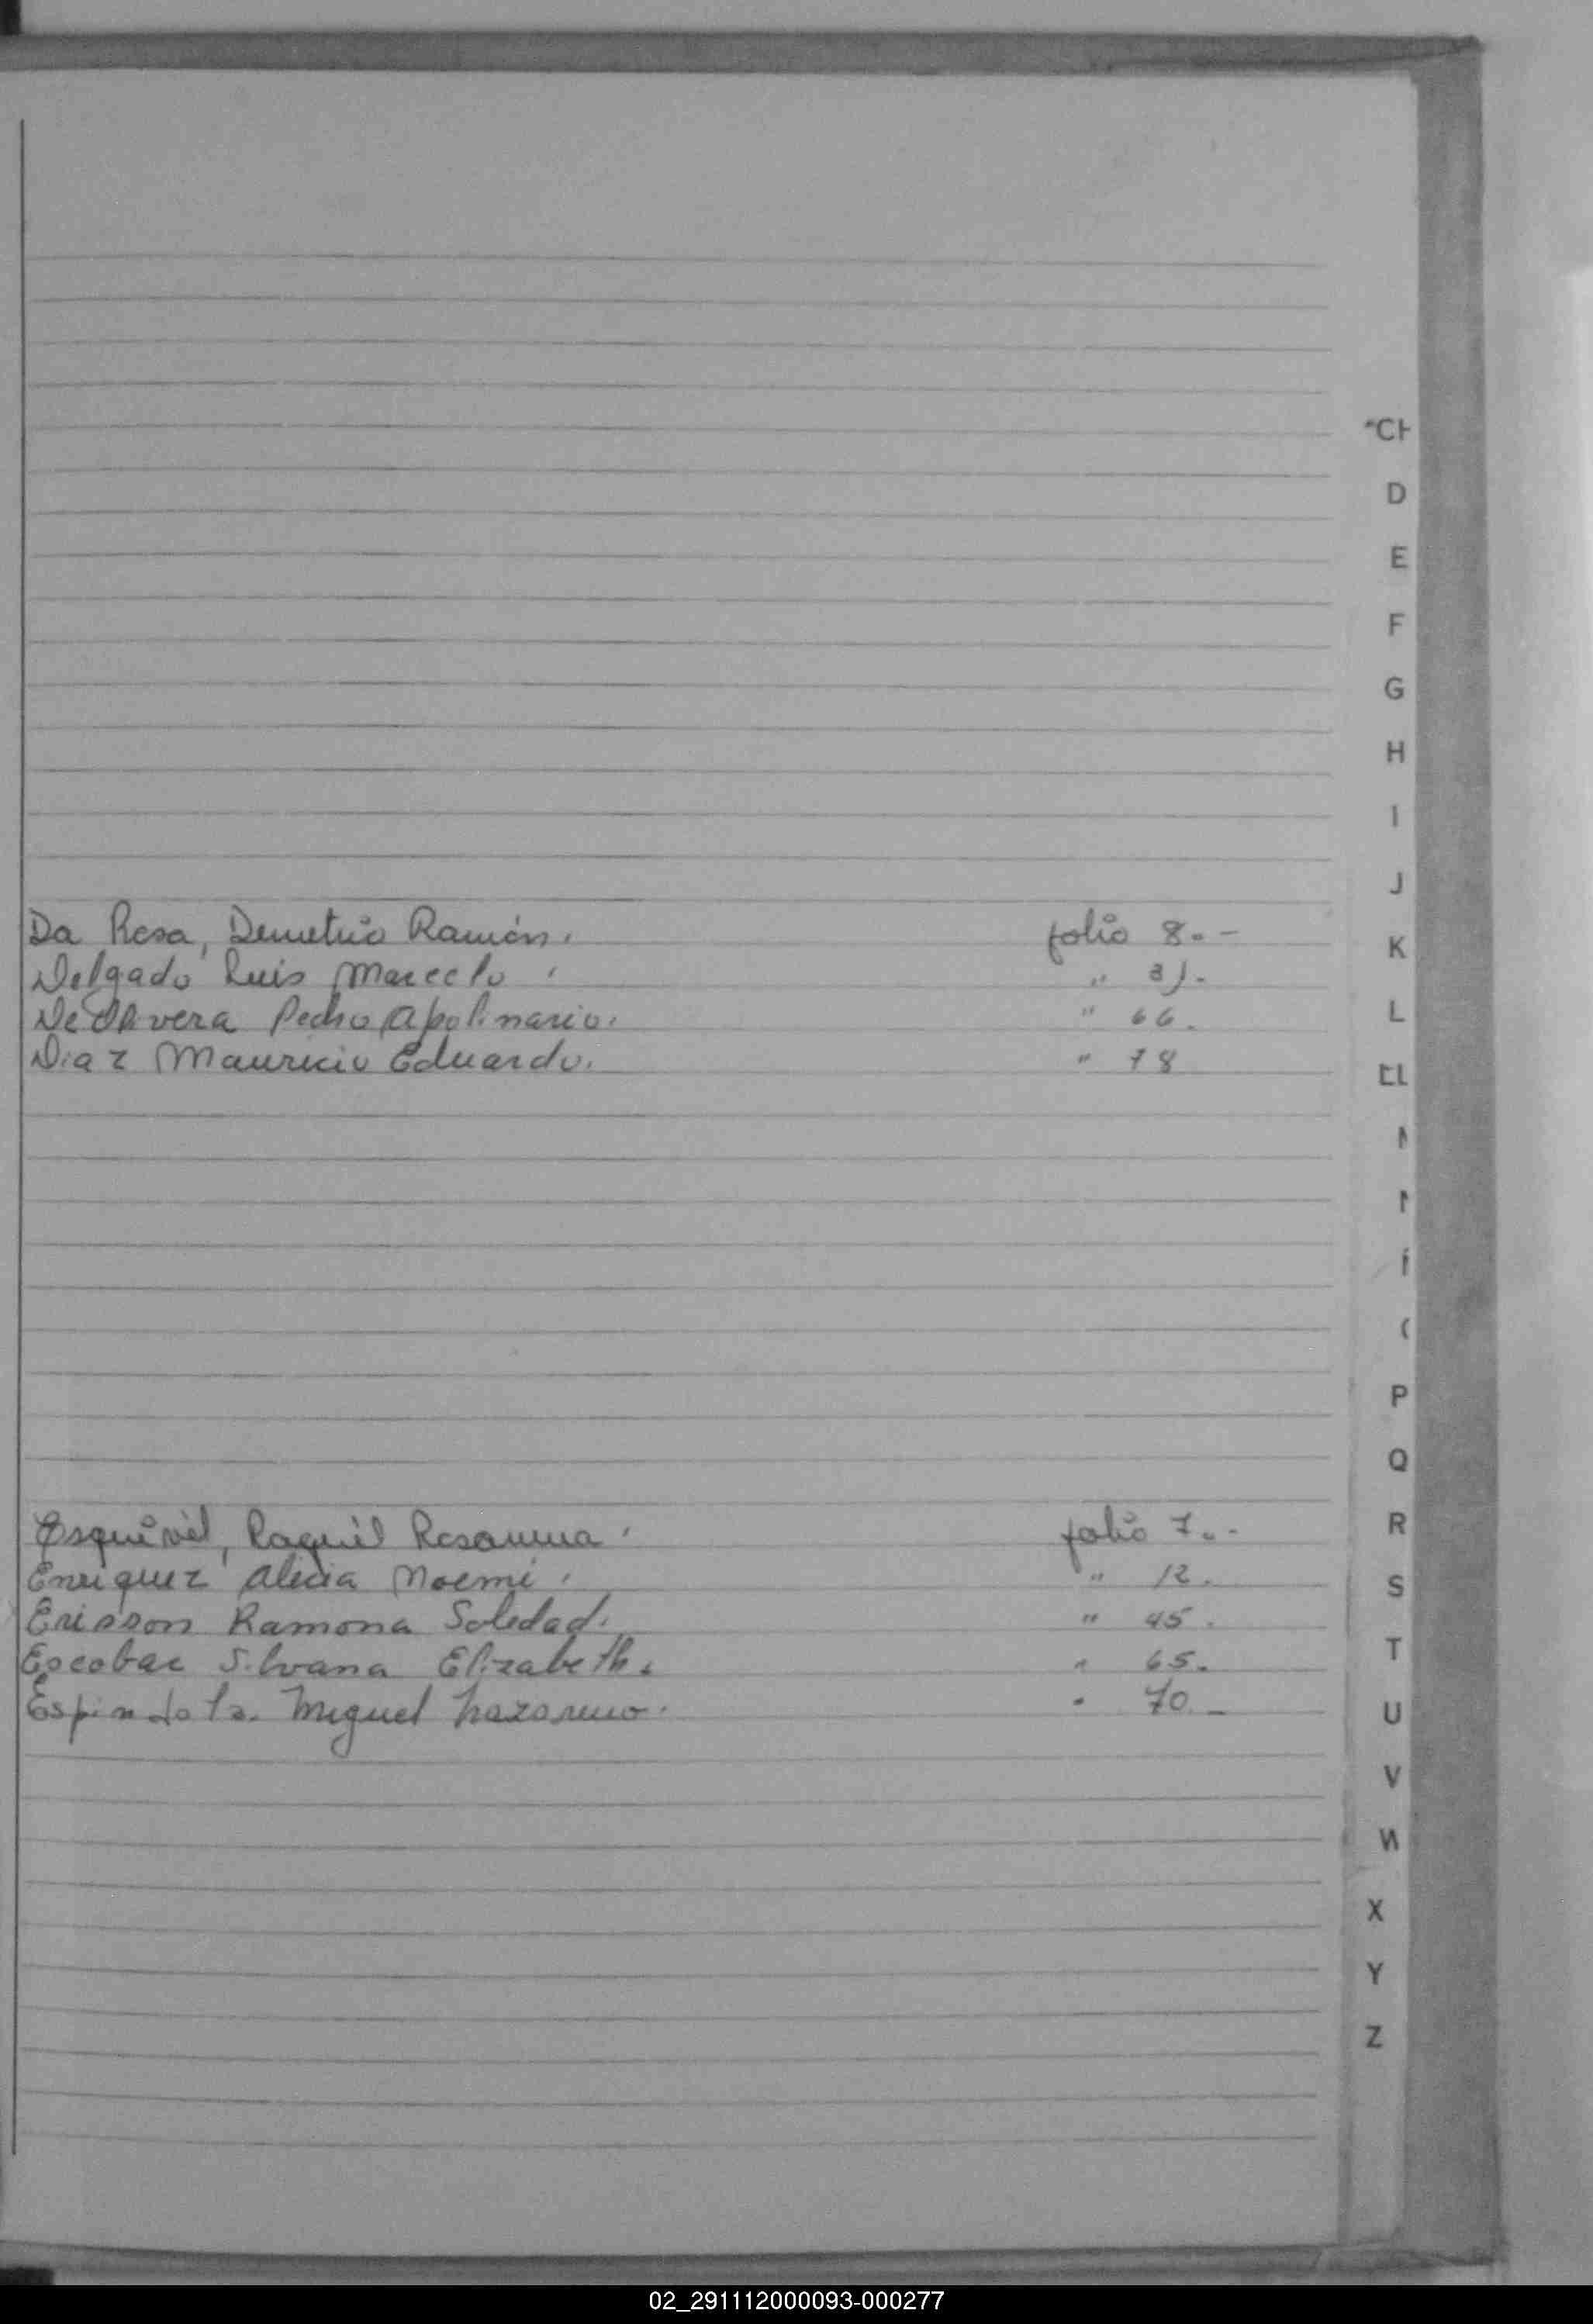 "CH
D
E
F
G
H
I
J
Da Rosa, Demetrio Ramón. folio 8.-
K
Delgado Luis Marcelo. " 31.-
De Olivera Pedro Apolinario. " 66.
L
Diaz Mauricio Eduardo. " 78
LL
P
Q
Esquivel, Raquel Rosanna. folio 7.-
R
Enriquez Alicia Noemi. " 12.
S
Erisson Ramona Soledad. " 45.
T
Escobar Silvana Elizabeth. " 65.
Espindola. Miguel Nazareno. " 70.-
U
V
W
X
Y
Z
02_291112000093-000277